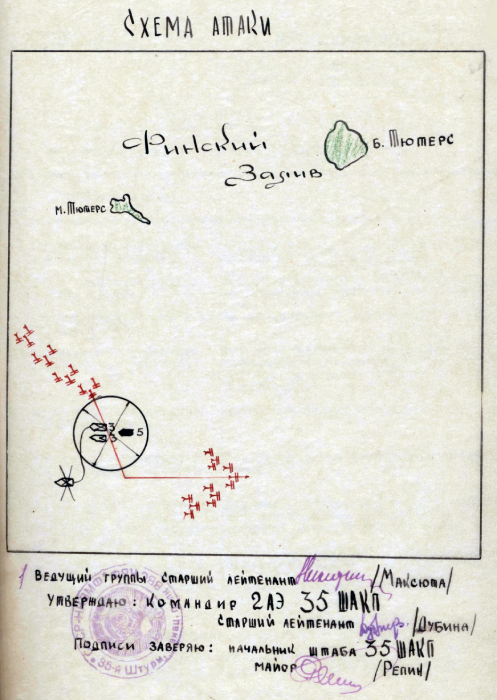 СХЕМА АТАКИ
Финский
Залив
Б. Тютерс
М. Тютерс
3
3
5
Ведущий группы старший лейтенант /Максюта/
Утверждаю: Командир 2АЭ 35 ШАКП
Старший лейтенант /Дубина/
Подписи заверяю: начальник штаба 35 ШАКП
майор /Репин/